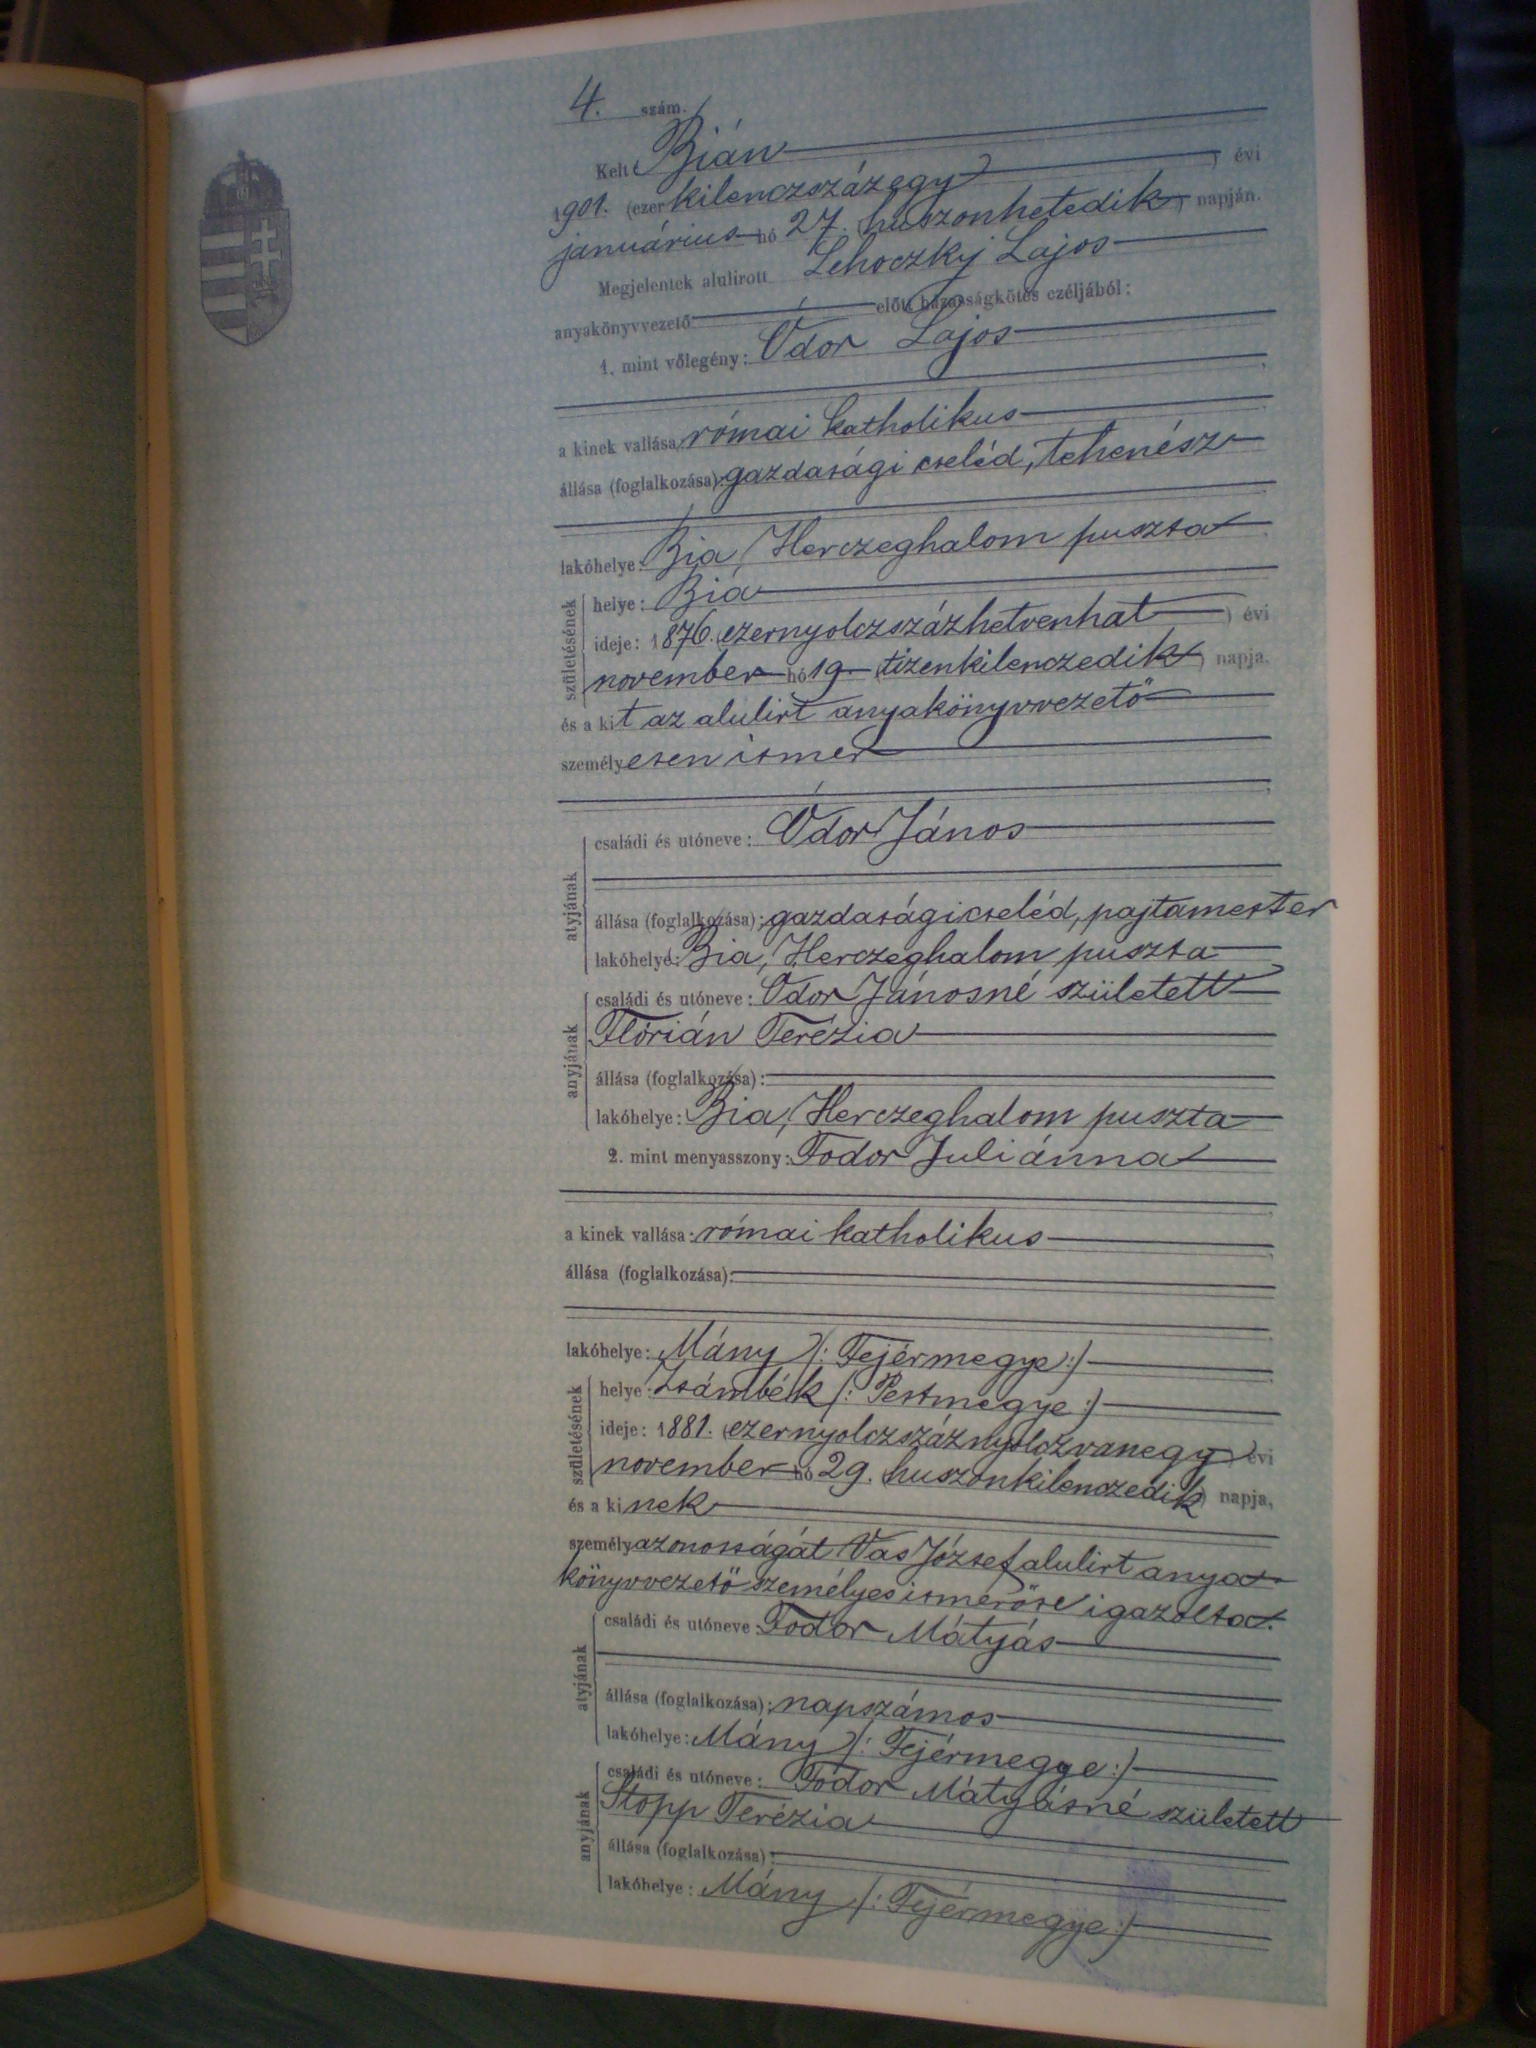 4. szám.
Kelt Bián
1901. (ezer kilenczszázegy) évi
január hó 27. (huszonhetedik) napján.
Megjelentek alulirott Lehoczky Lajos
anyakönyvvezető előtt házasságkötés czéljából:
1. mint vőlegény: Ódor Lajos
a kinek vallása: római katholikus
állása (foglalkozása): gazdasági cseléd, tehenész
lakóhelye: Bia, Herczeghalom puszta
születésének
helye: Bia
ideje: 1876. (ezernyolczszázhetvenhat) évi
november hó 19. (tizenkilenczedik) napja,
és a kit az alulirt anyakönyvvezető
személyesen ismer
atyjának
családi és utóneve: Ódor János
állása (foglalkozása): gazdasági cseléd, pajtamester
lakóhelye: Bia, Herczeghalom puszta
anyjának
családi és utóneve: Ódor Jánosné született
Flórián Terézia
állása (foglalkozása):
lakóhelye: Bia, Herczeghalom puszta
2. mint menyasszony: Fodor Juliánna
a kinek vallása: római katholikus
állása (foglalkozása):
lakóhelye: Mány /: Fejérmegye :/
születésének
helye: Zsámbék /: Pestmegye :/
ideje: 1881. (ezernyolczszáznyolczvanegy) évi
november hó 29. (huszonkilenczedik) napja,
és a kinek
személyazonosságát Vas József alulirt anya-
könyvvezető személyes ismerőse igazolta.
atyjának
családi és utóneve: Fodor Mátyás
állása (foglalkozása): napszámos
lakóhelye: Mány /: Fejérmegye :/
anyjának
családi és utóneve: Fodor Mátyásné született
Stopp Terézia
állása (foglalkozása):
lakóhelye: Mány /: Fejérmegye :/